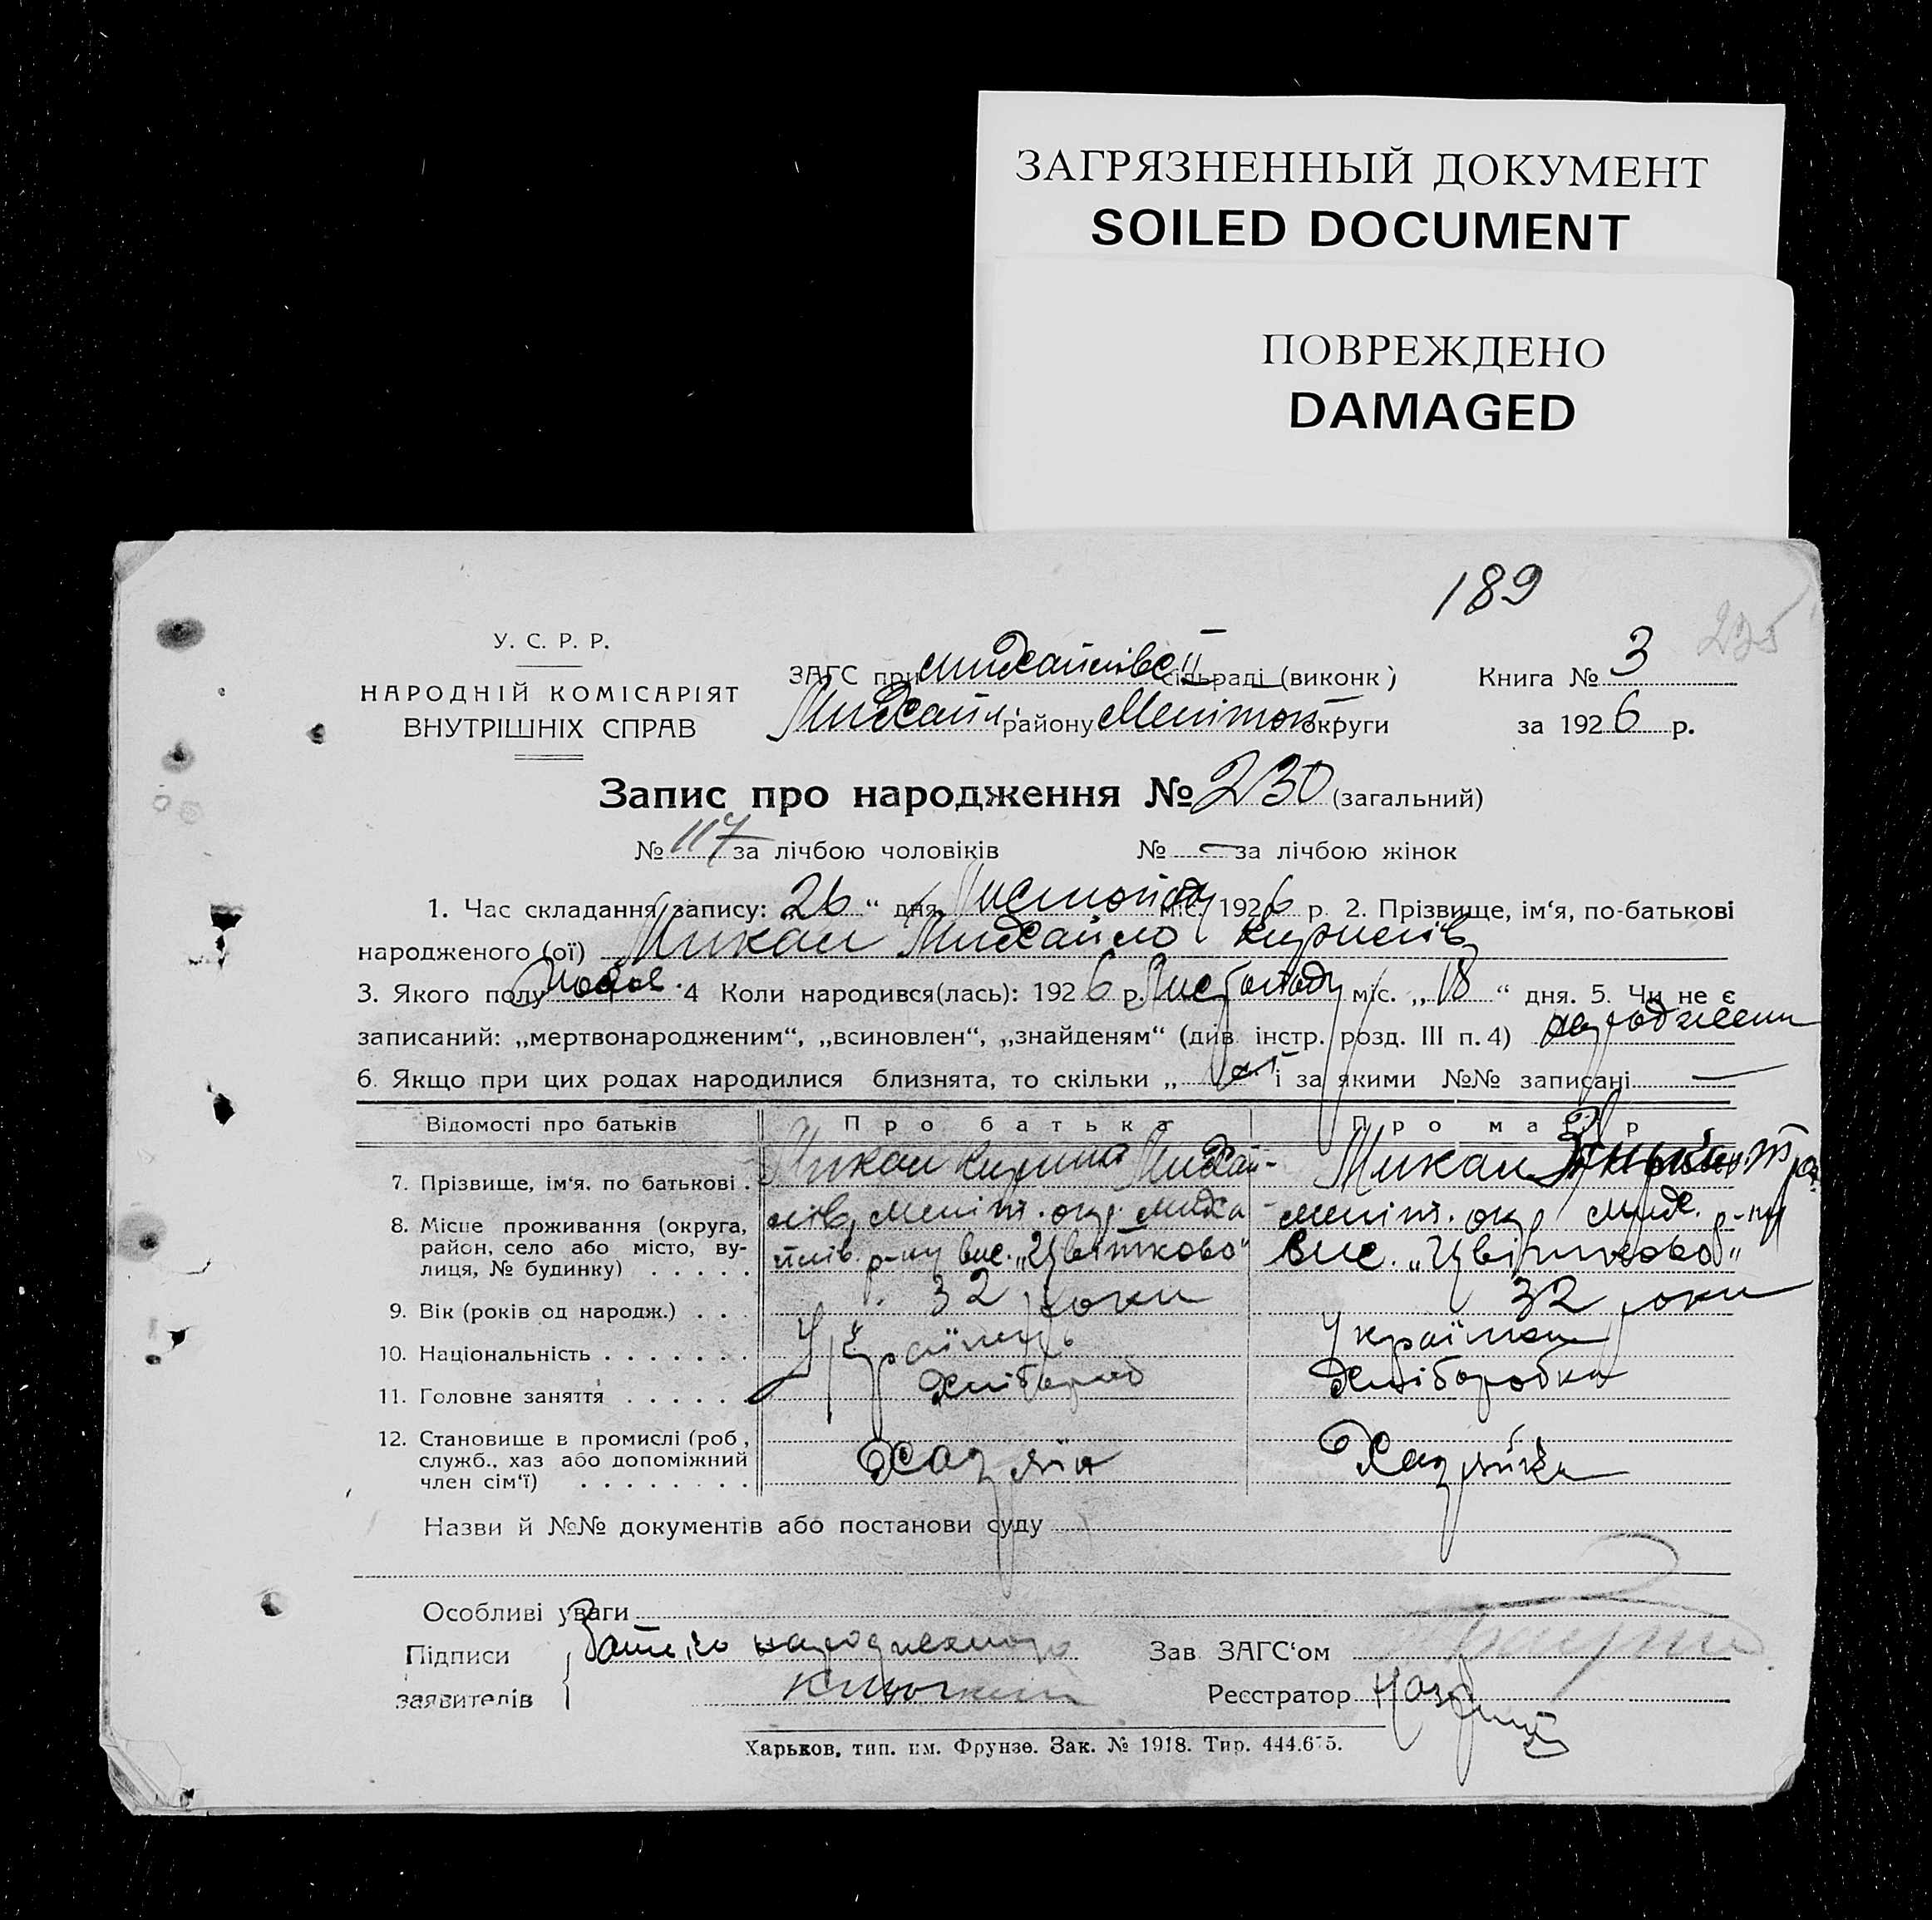 ЗАГРЯЗНЕННЫЙ ДОКУМЕНТ
SOILED DOCUMENT
ПОВРЕЖДЕНО
DAMAGED
189
235
У. С. Р. Р.
НАРОДНІЙ КОМІСАРІЯТ
ВНУТРІШНІХ СПРАВ
ЗАГС при сільраді (виконк)
району округи
Книга № 3
за 1926 р.
Запис про народження № 230 (загальний)
№ 117 за лічбою чоловіків № — за лічбою жінок
1. Час складання запису: „26“ дня міс. 1926 р. 2. Прізвище, ім‘я, по-батькові
народженого (ої) Микал Михайло
3. Якого полу 4 Коли народився(лась): 1926 р. міс. „18“ дня. 5. Чи не є
записаний: „мертвонародженим“, „всиновлен“, „знайденям“ (див. інстр. розд. III п. 4)
6. Якщо при цих родах народилися близнята, то скільки „ і за якими №№ записані —
Відомості про батьків Про батька Про матір
7. Прізвище, ім‘я, по батькові . Микал Михай- Микал
8. Місце проживання (округа,
район, село або місто, ву-
лиця, № будинку) . . . . . р-ну вис. „Цвітково“ вис. „Цвітково“
9. Вік (років од народж.) . . . 32 роки 32 роки
10. Національність . . . . . . . Українець Українка
11. Головне заняття . . . . . . Хлібороб Хліборобка
12. Становище в промислі (роб,
служб., хаз або допоміжний
член сім‘ї) . . . . . . . . Хазяїн Хазяйка
Назви й №№ документів або постанови суду
Особливі уваги
Підписи
заявителів
Батько народженого
Зав ЗАГС‘ом
Реєстратор
Харьков, тип. им. Фрунзе. Зак. № 1918. Тир. 444.675.